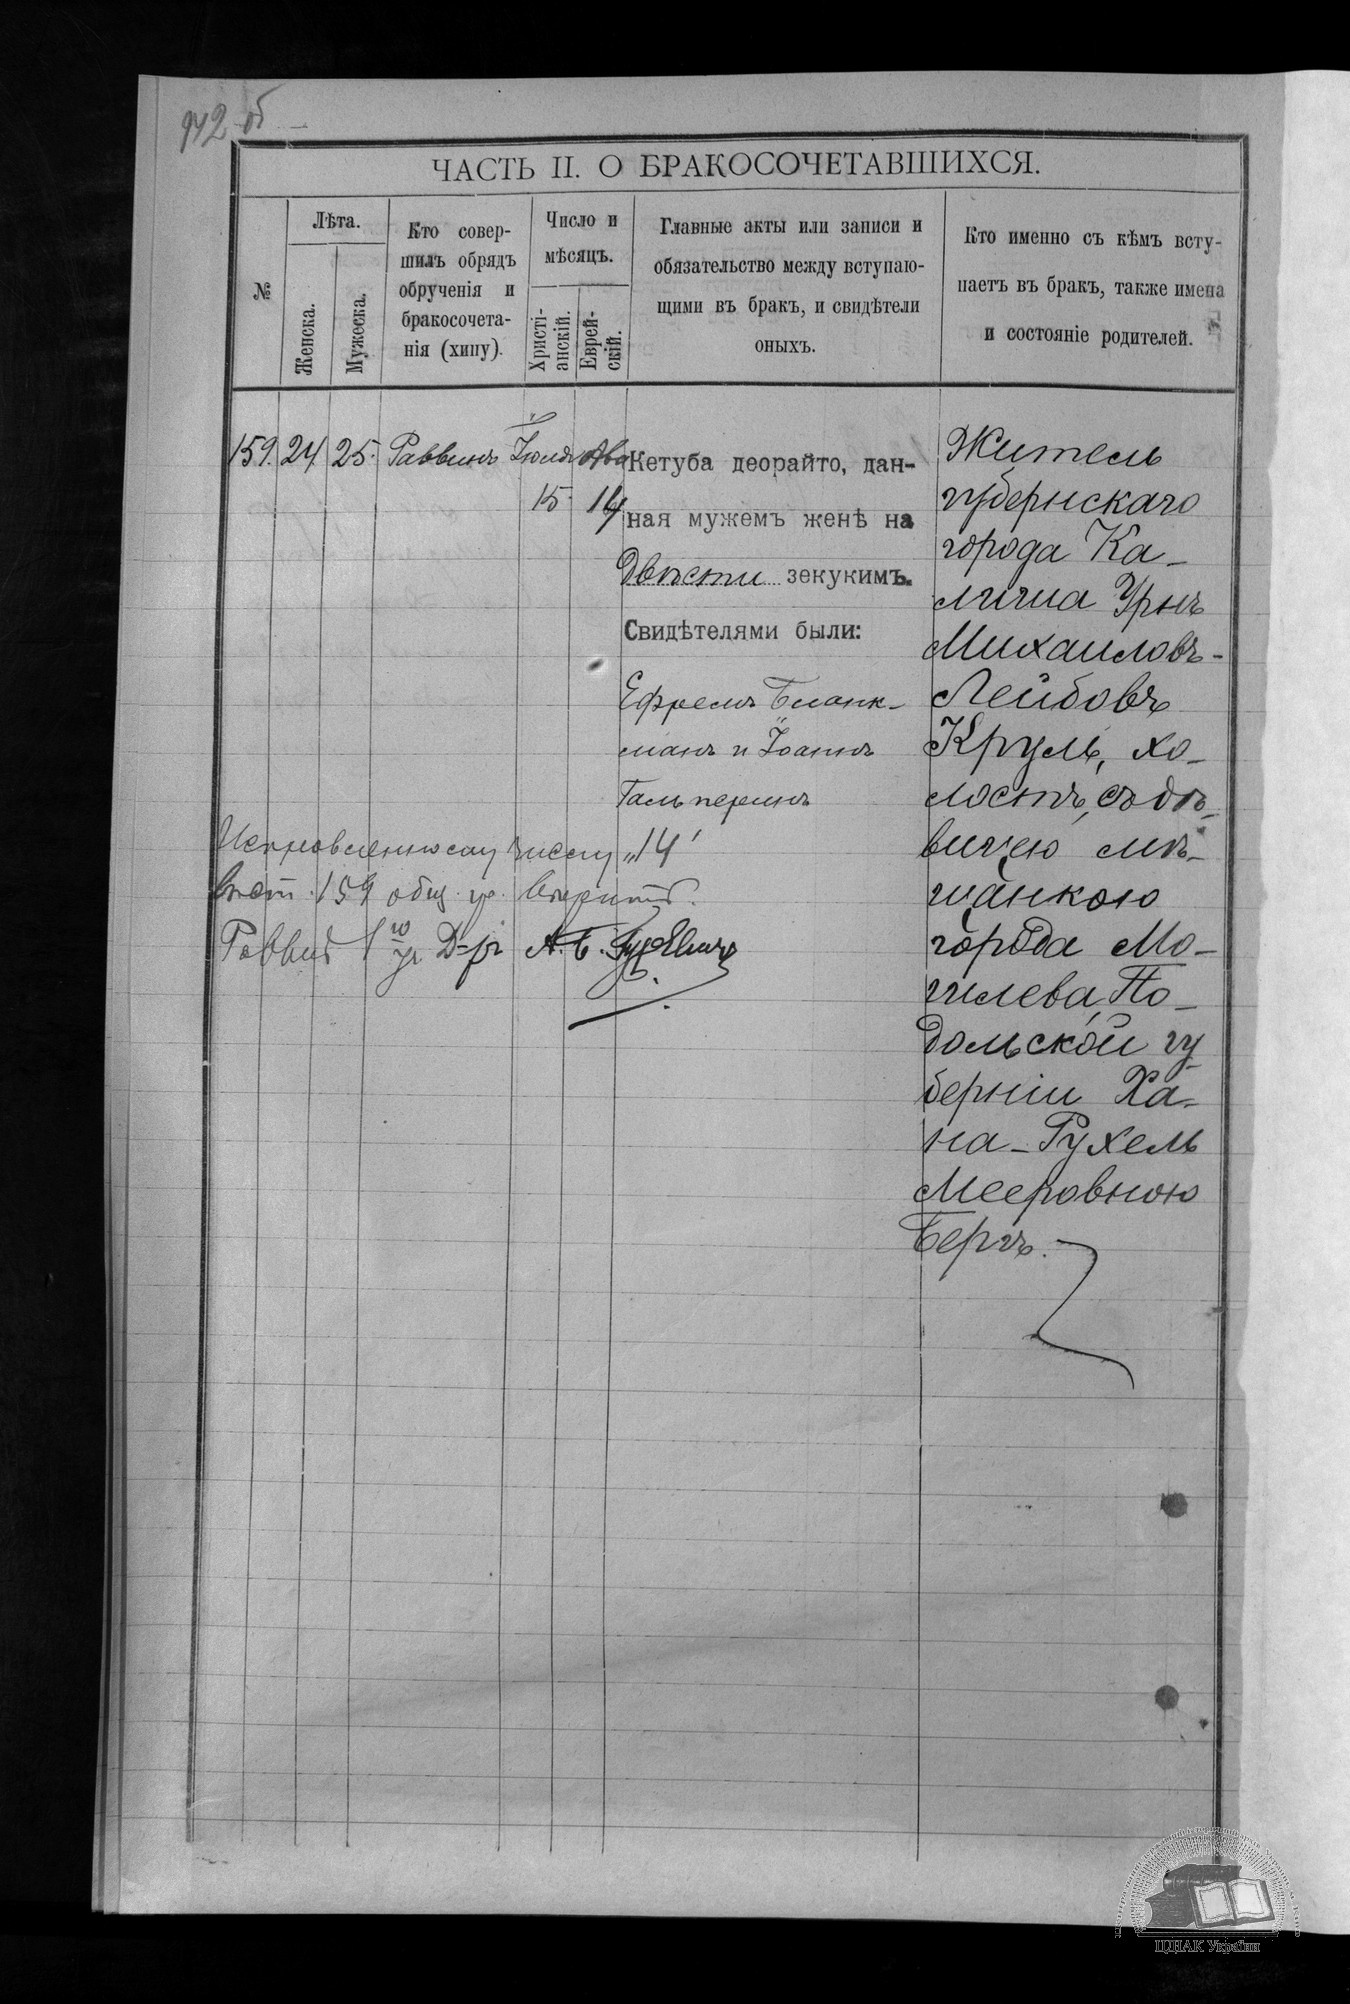 942 об
ЧАСТЬ II. О БРАКОСОЧЕТАВШИХСЯ.
№
Лѣта.
Женска.
Мужеска.
Кто совер-
шилъ обрядъ
обрученія и
бракосочета-
нія (хипу).
Число и
мѣсяцъ.
Христі-
анскій.
Еврей-
скій.
Главные акты или записи и
обязательство между вступаю-
щими въ бракъ, и свидѣтели
оныхъ.
Кто именно съ кѣмъ всту-
паетъ въ бракъ, также имена
и состояніе родителей.
159. 24 25. Раввинъ Іюля Ава
15 14
Кетуба деорайто, дан-
ная мужемъ женѣ на
Двѣсти зекукимъ.
Свидѣтелями были:
Ефремъ Бланк-
манъ и Іоаннъ
Гальперинъ
Житель
губернскаго
города Ка-
лиша Урнъ
Михаиловъ-
Лейбовъ
Круль, хо-
лостъ, съ дѣ-
вицею мѣ-
щанкою
города Мо-
гилева, По-
дольской гу
берніи Ха-
на-Рухель
Мееровною
Бергъ.
Исправленному числу „14"
въ ст. 159 общ. гр. вѣрить.
Раввинъ 1го уч Д-ръ А. Б. Гуревичъ
ЦДІАК України